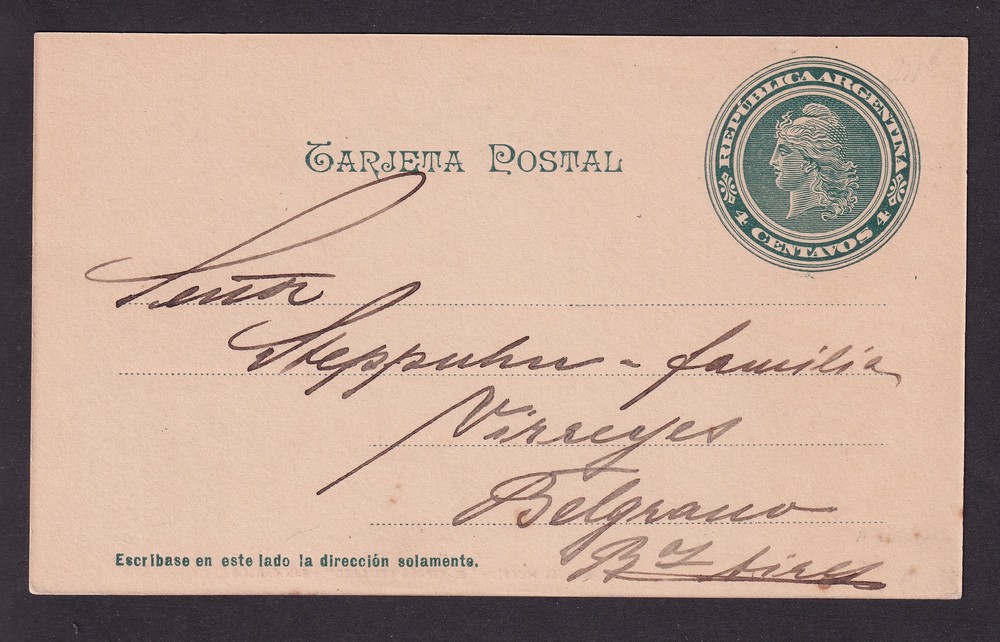 REPÚBLICA ARGENTINA
4 CENTAVOS 4
TARJETA POSTAL
Señor
Steppuhn - familia
Virreyes
Belgrano
Bs Aires
Escríbase en este lado la dirección solamente.